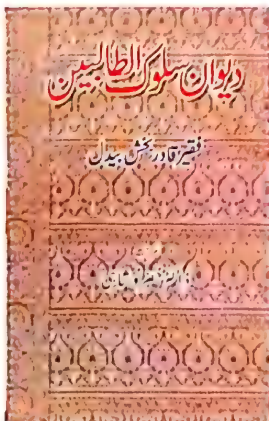 دیوان سلوک الطالبین
فقیر قادر بخش بیدل